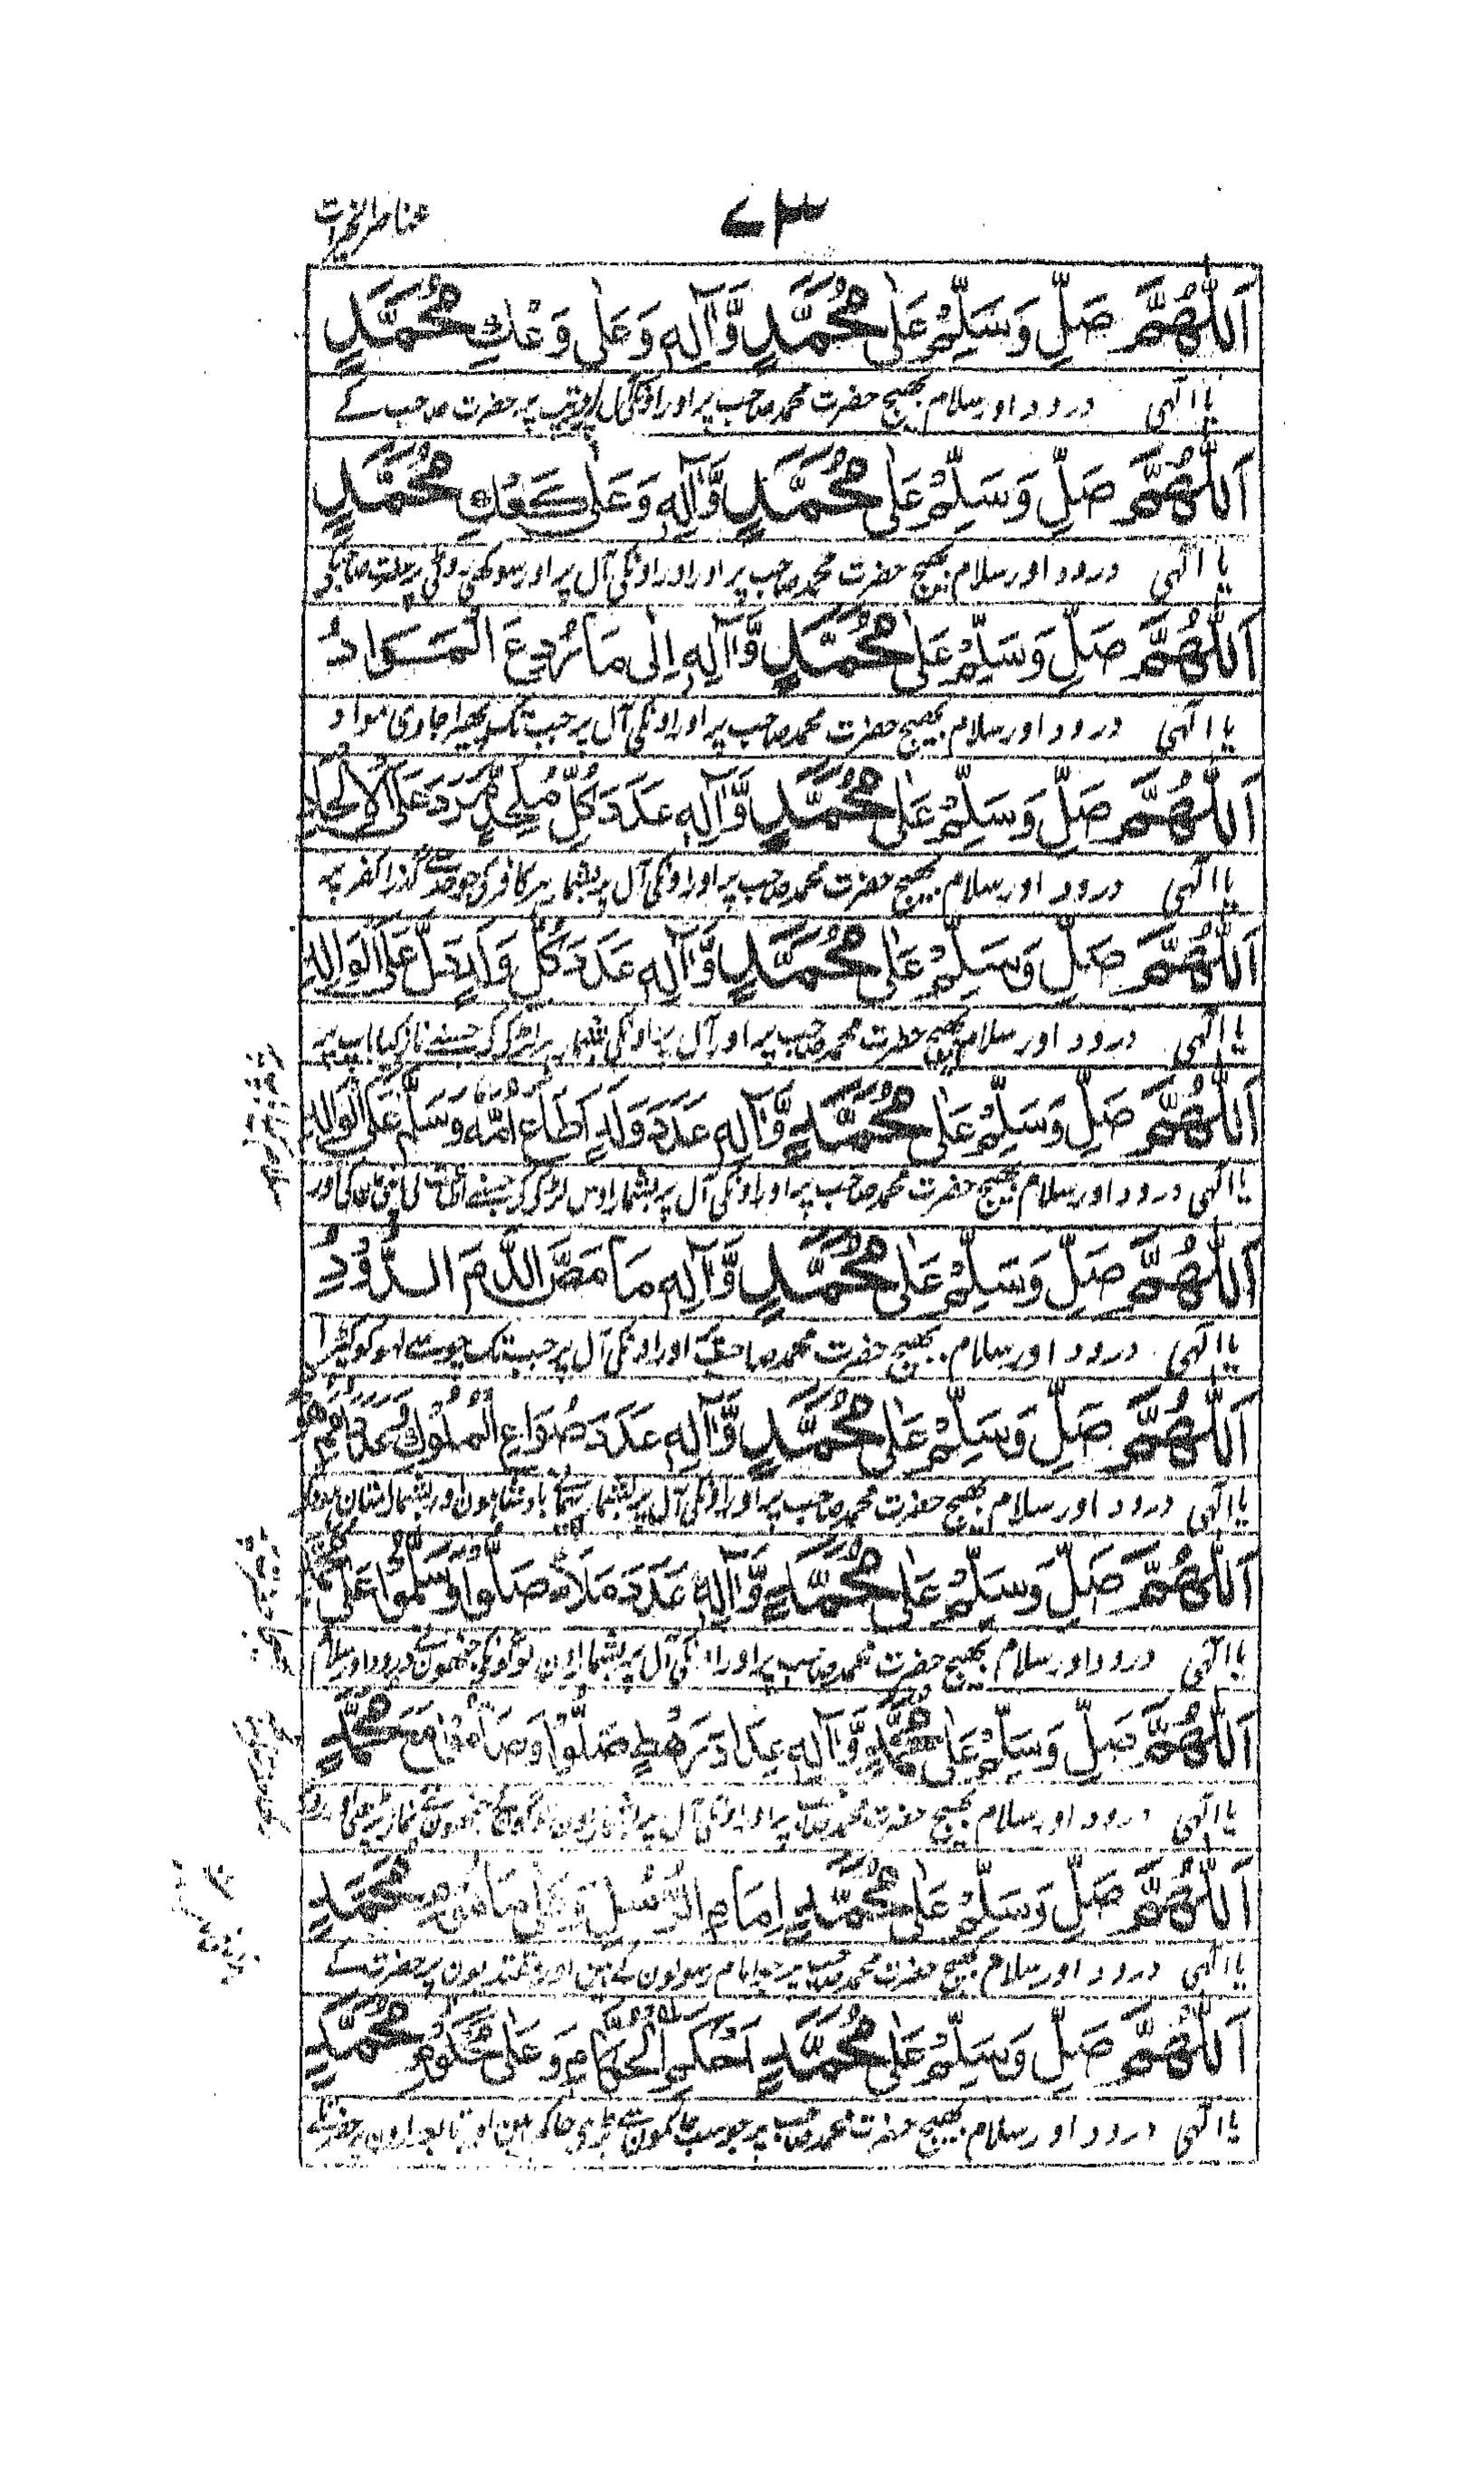 ۷۳ عناصر الخیرات
اَللّٰهُمَّ صَلِّ وَسَلِّمْ عَلٰی مُحَمَّدٍ وَّاٰلِهٖ وَعَلٰی وَعْكِ مُحَمَّدٍ
یا الٰہی درود اور سلام بھیج حضرت محمد صاحب پر اور اونکی آل پر اور تپ پر حضرت صاحب کے
اَللّٰهُمَّ صَلِّ وَسَلِّمْ عَلٰی مُحَمَّدٍ وَّاٰلِهٖ وَعَلٰی كَعْكِ مُحَمَّدٍ
یا الٰہی درود اور سلام بھیج حضرت محمد صاحب پر اور اونکی آل پر اور سوکھی روٹی پر
اَللّٰهُمَّ صَلِّ وَسَلِّمْ عَلٰی مُحَمَّدٍ وَّاٰلِهٖ اِلٰی مَا
یا الٰہی درود اور سلام بھیج حضرت محمد صاحب پر اور اونکی آل پر جب تک پھیرا جاوی مواد
اَللّٰهُمَّ صَلِّ وَسَلِّمْ عَلٰی مُحَمَّدٍ وَّاٰلِهٖ عَدَدَ كُلِّ مُلْحِدٍ مَّرَدَ عَلَی الْاِلْحَادِ
یا الٰہی درود اور سلام بھیج حضرت محمد صاحب پر اور اونکی آل پر بشمار ہر کافر کی جو حد سے گذرا کفر پہ
اَللّٰهُمَّ صَلِّ وَسَلِّمْ عَلٰی مُحَمَّدٍ وَّاٰلِهٖ عَدَدَ كُلِّ وَلَدٍ عَلَی الْوَالِدِ
یا الٰہی درود اور سلام بھیج حضرت محمد صاحب پر اور آل پر اونکی بشمار ہر لڑکے کے جسنے ناز کیا باپ پہ
اَللّٰهُمَّ صَلِّ وَسَلِّمْ عَلٰی مُحَمَّدٍ وَّاٰلِهٖ عَدَدَ وَلَدٍ اَطَاعَ اُمَّهٗ وَسَلَّمَ عَلَی الْوَالِدِ
یا الٰہی درود اور سلام بھیج حضرت محمد صاحب پر اور اونکی آل پر بشمار اوس لڑکے کے جسنے اطاعت کی اپنی مان کی اور
اَللّٰهُمَّ صَلِّ وَسَلِّمْ عَلٰی مُحَمَّدٍ وَّاٰلِهٖ مَا مَصَّ الدَّمَ الدُّوْدُ
یا الٰہی درود اور سلام بھیج حضرت محمد صاحب پر اور اونکی آل پر جب تک چوسے لہو کو کیڑا
اَللّٰهُمَّ صَلِّ وَسَلِّمْ عَلٰی مُحَمَّدٍ وَّاٰلِهٖ عَدَدَ صُوَاعِ الْمُلُوْكِ
یا الٰہی درود اور سلام بھیج حضرت محمد صاحب پر اور اونکی آل پر بشمار بادشاہون اور بشمار
اَللّٰهُمَّ صَلِّ وَسَلِّمْ عَلٰی مُحَمَّدٍ وَّاٰلِهٖ عَدَدَ مَلَاءٍ صَلَّوْا وَسَلَّمُوْا عَلٰی مُحَمَّدٍ
یا الٰہی درود اور سلام بھیج حضرت محمد صاحب پر اور اونکی آل پر بشمار اون لوگونکی جنھون نے درود اور سلام
اَللّٰهُمَّ صَلِّ وَسَلِّمْ عَلٰی مُحَمَّدٍ وَّاٰلِهٖ عِدَادَ رَهْطٍ صَلَّوْا وَصَامُوْا مَعَ مُحَمَّدٍ
یا الٰہی درود اور سلام بھیج حضرت محمد صاحب پر اور اونکی آل پر بشمار اون لوگونکے جنھون نے نماز پڑھی اور
اَللّٰهُمَّ صَلِّ وَسَلِّمْ عَلٰی مُحَمَّدٍ اِمَامِ الرُّسُلِ وَعَلٰی مُحَمَّدٍ
یا الٰہی درود اور سلام بھیج حضرت محمد صاحب پر جو امام رسولون کے ہین اور مقتدیون پر حضرت کے
اَللّٰهُمَّ صَلِّ وَسَلِّمْ عَلٰی مُحَمَّدٍ اَحْكَمِ الْحُكَّامِ وَعَلٰی مَحْكُوْمِ مُحَمَّدٍ
یا الٰہی درود اور سلام بھیج حضرت محمد صاحب پر جو سب حاکمون سے بڑی حاکم ہین اور تابعدارون پر حضرت کے